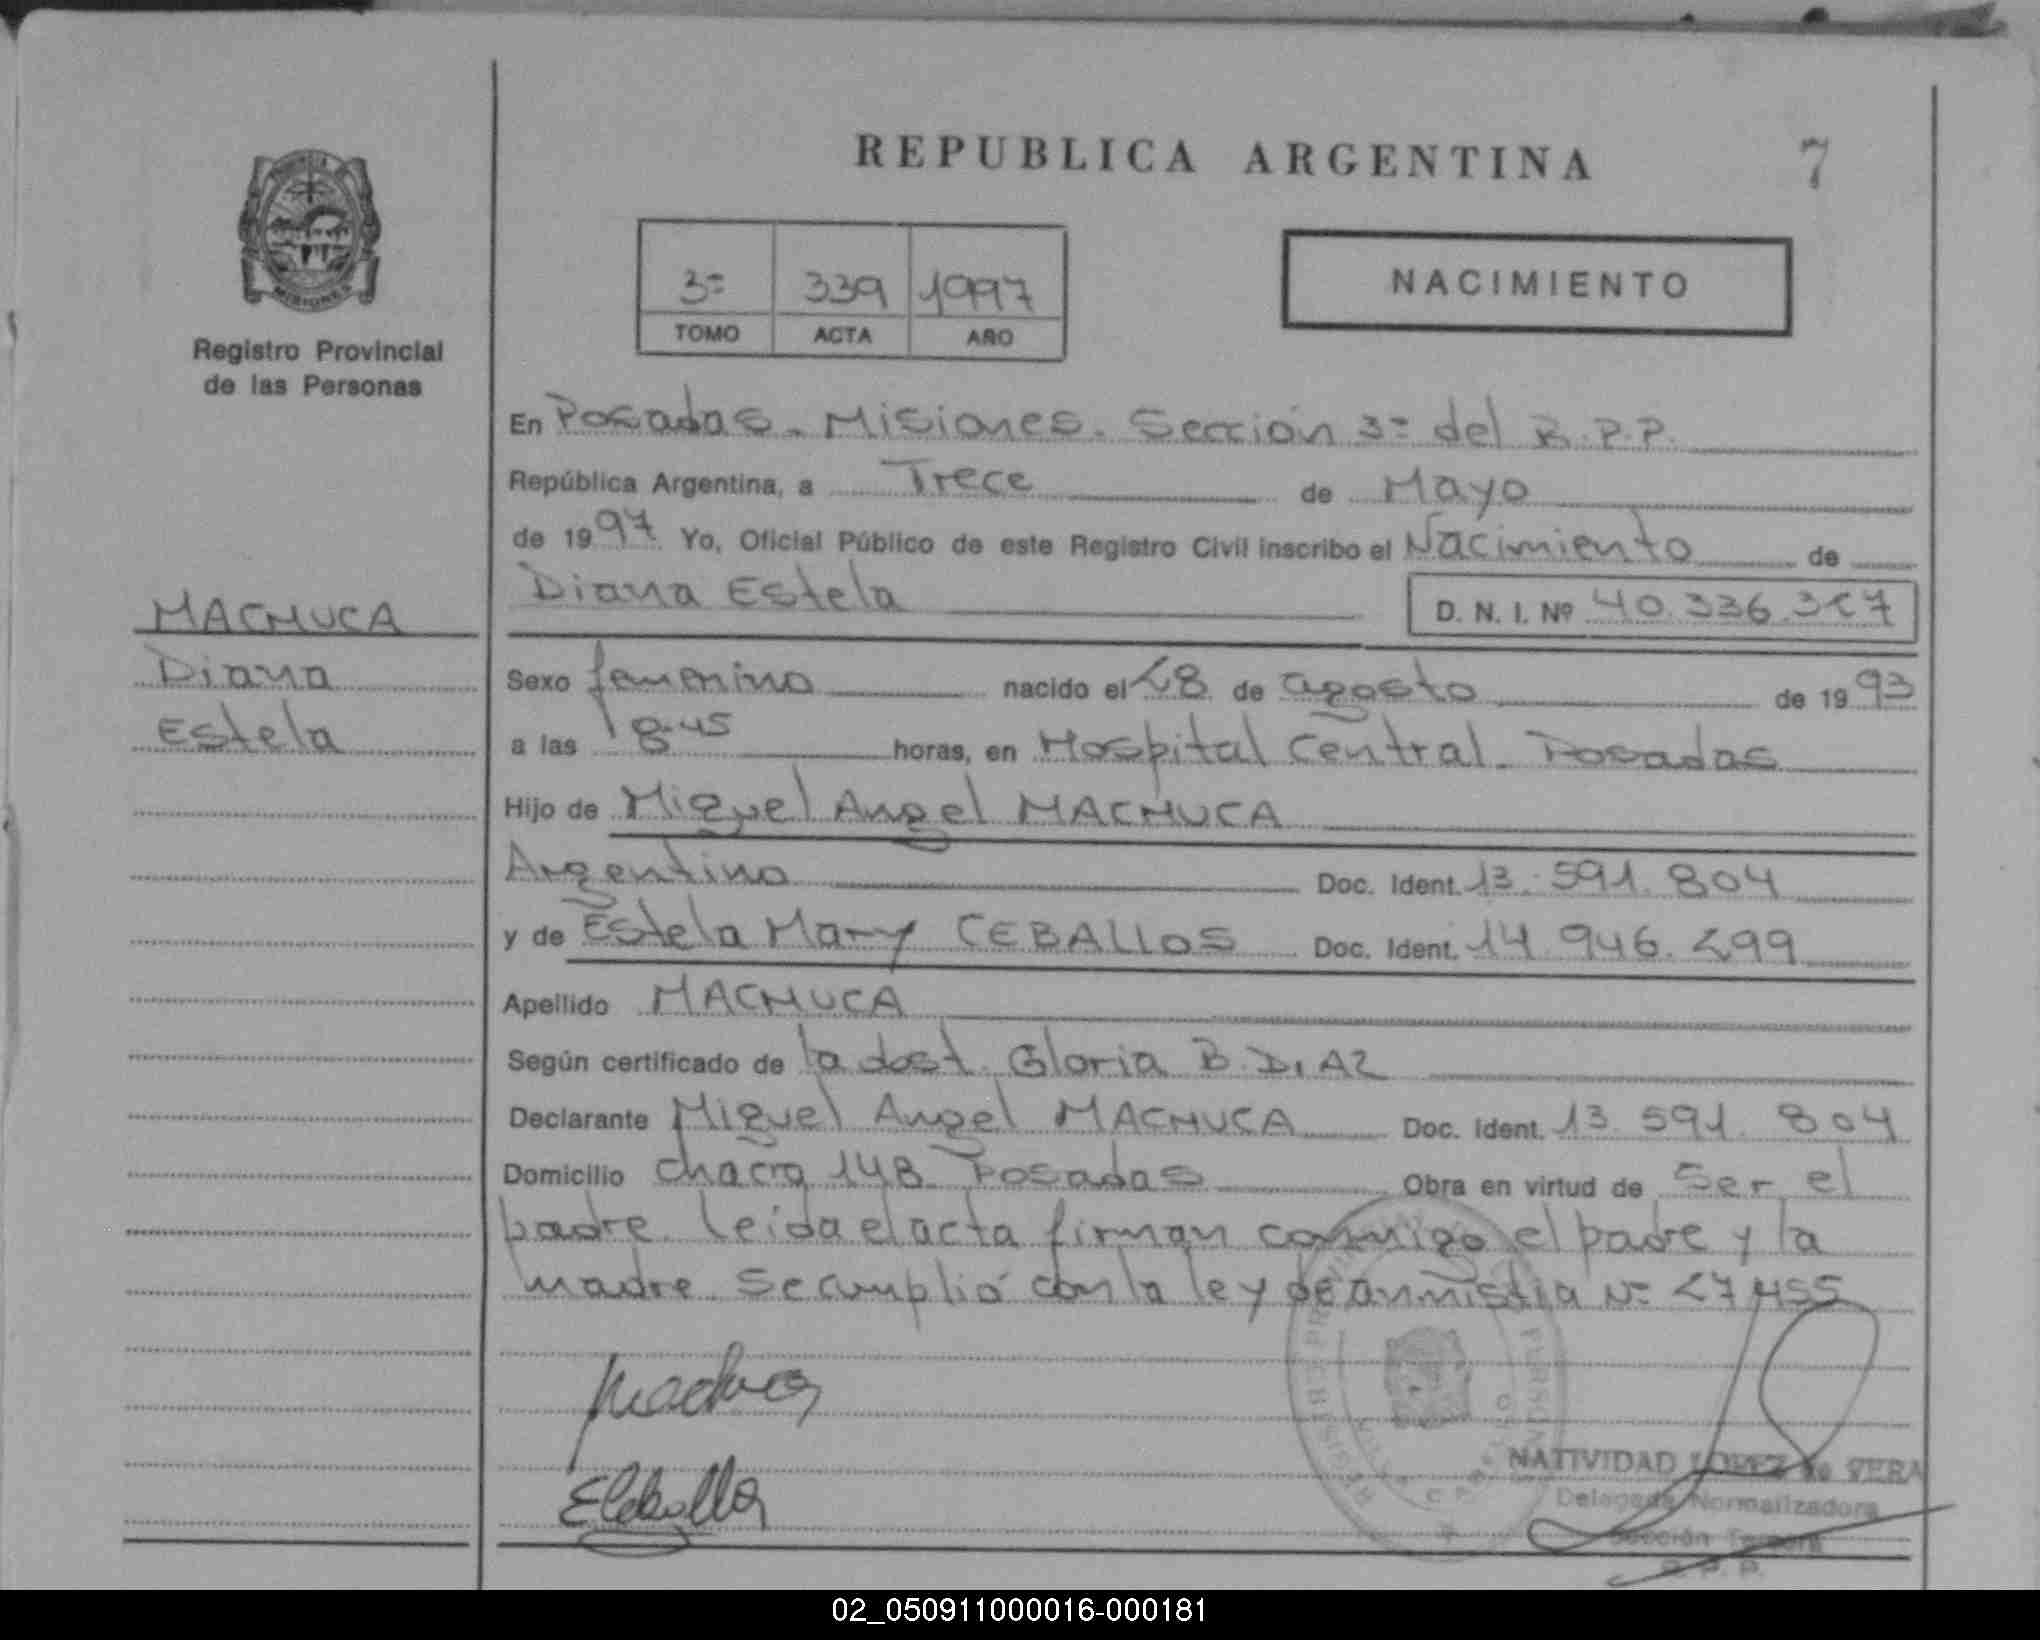 REPUBLICA ARGENTINA
7
3ª 339 1997
TOMO ACTA AÑO
NACIMIENTO
MISIONES
Registro Provincial
de las Personas
MACHUCA
Diana
Estela
En Posadas - Misiones. Sección 3ª del R.P.P.
República Argentina, a Trece de Mayo
de 1997 Yo, Oficial Público de este Registro Civil inscribo el Nacimiento de
Diana Estela D. N. I. Nº 40.336.
Sexo femenino nacido el 28 de agosto de 1993
a las 18:45 horas, en Hospital Central. Posadas
Hijo de Miguel Angel MACHUCA
Argentino Doc. Ident. 13.591.804
y de Estela Mary CEBALLOS Doc. Ident. 14.946.299
Apellido MACHUCA
Según certificado de la obst. Gloria B. DIAZ
Declarante Miguel Angel MACHUCA Doc. Ident. 13.591.804
Domicilio chacra 148 Posadas Obra en virtud de ser el
padre. leida el acta firman conmigo el padre y la
madre. Se cumplió con la ley de amnistia Nº 27455
Machuca
ECeballos
NATIVIDAD LOPEZ de VERA
Delegada Normalizadora
Sección Tercera
R. P. P.
02_050911000016-000181